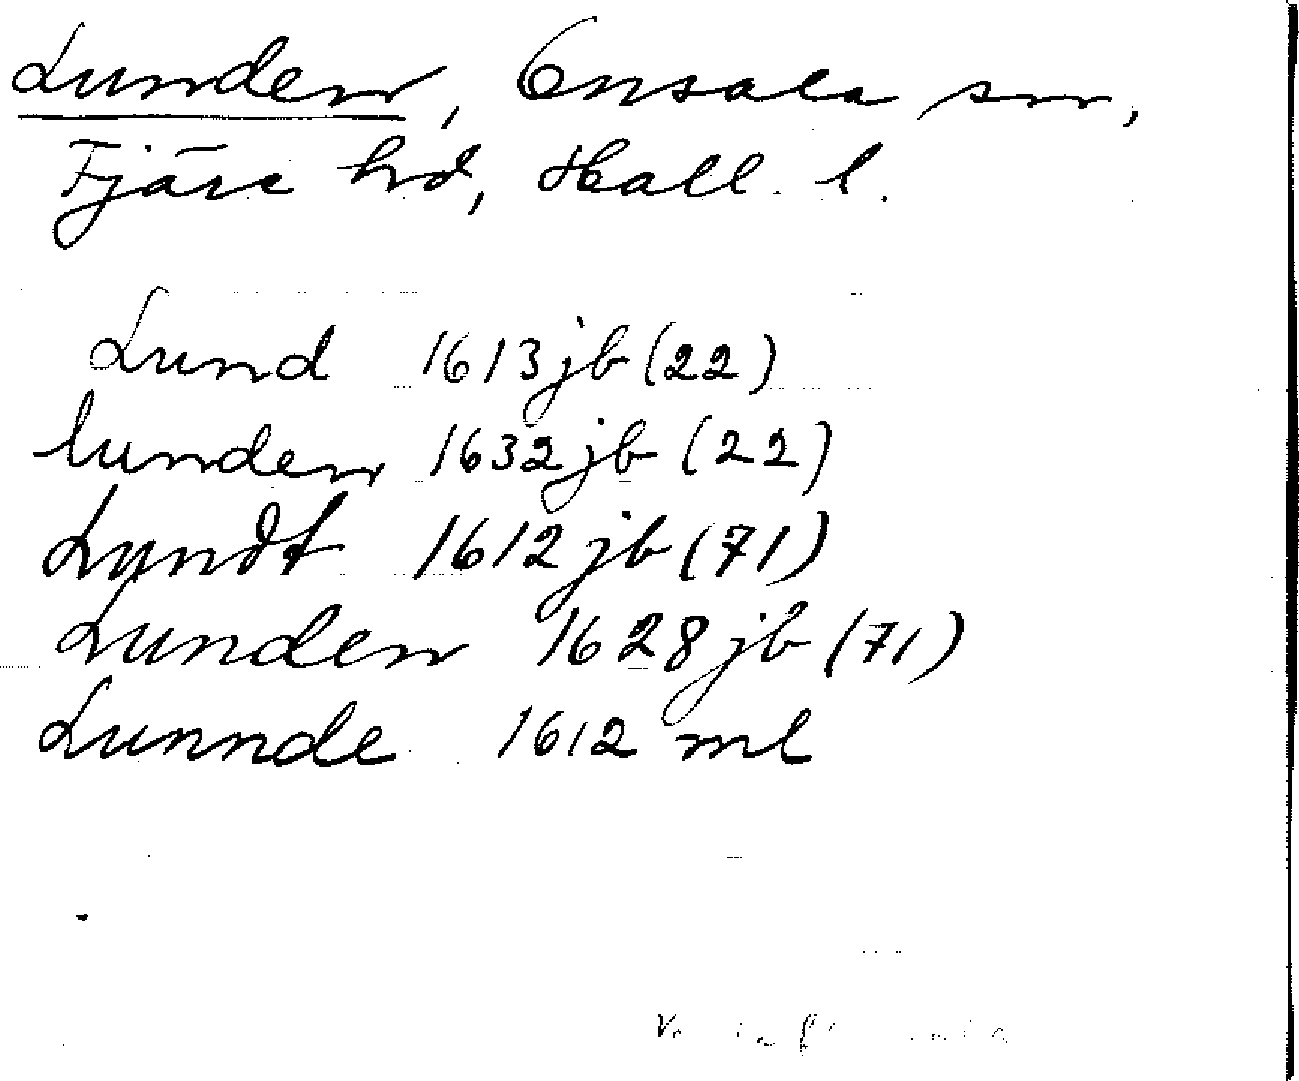 Lunden, Onsala sn,
Fjäre hd, Hall. l.
Lund 1613 jb (22)
lunden 1632 jb (22)
Lyndt 1612 jb (71)
Lunden 1628 jb (71)
Lunnde 1612 ml